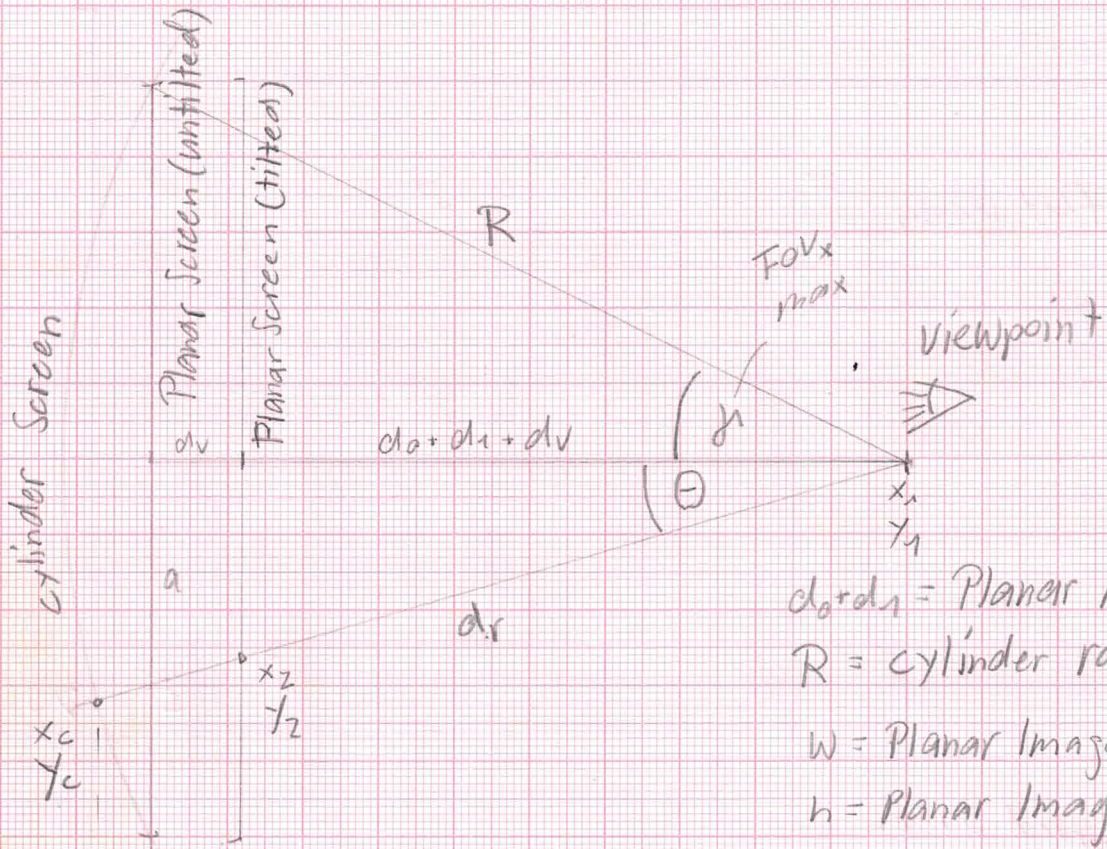 Cylinder Screen
Planar Screen (untilted)
dv
Planar Screen (tilted)
R
FOVx
max
viewpoint
d0 + d1 + dv
Θ
x1
y1
a
dr
x2
y2
xc
yc
d0+d1 = Planar
R = cylinder
W = Planar Imag
h = Planar Imag